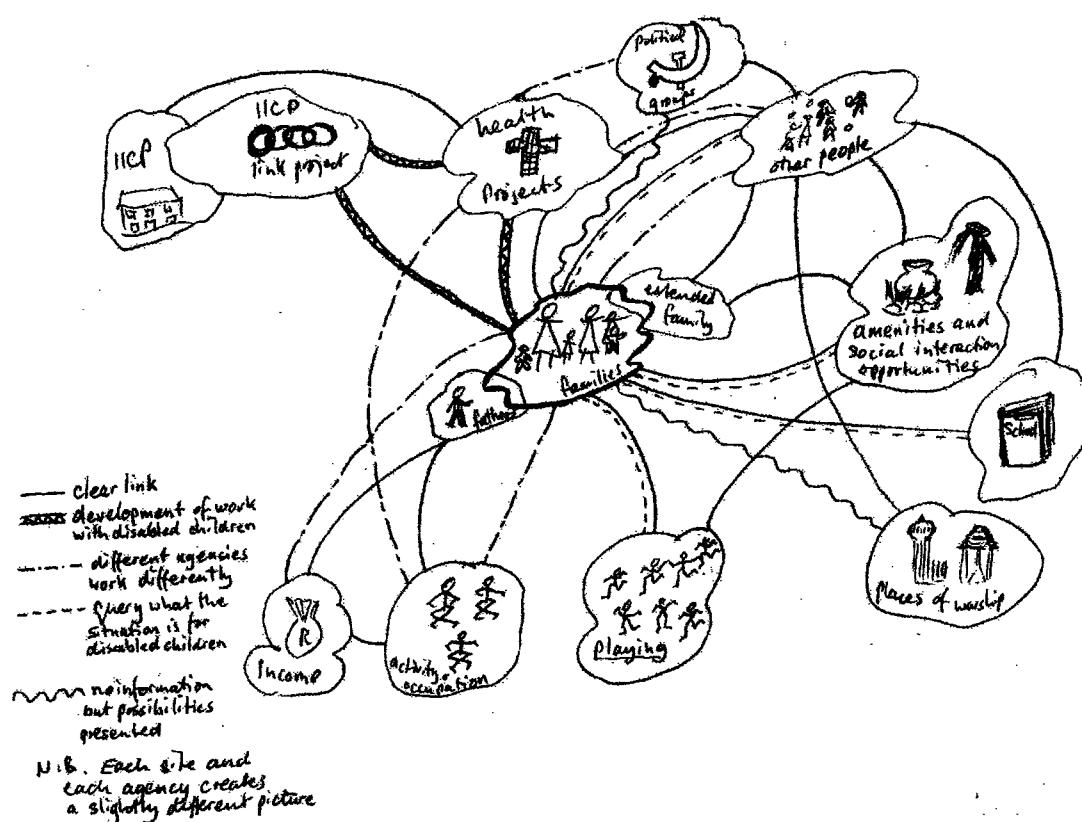 Political
groups
IICP
IICP
link project
health
projects
other people
extended
family
families
father
amenities and
social interaction
opportunities
School
Places of worship
playing
activity,
occupation
R
Income
clear link
development of work
with disabled children
different agencies
work differently
query what the
situation is for
disabled children
no information
but possibilities
presented
N.B. Each site and
each agency creates
a slightly different picture